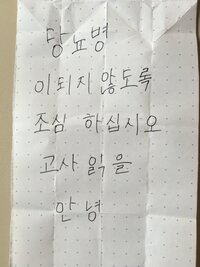 당뇨병
이되지 않도록
조심 하십시오
고사 읽을
안녕